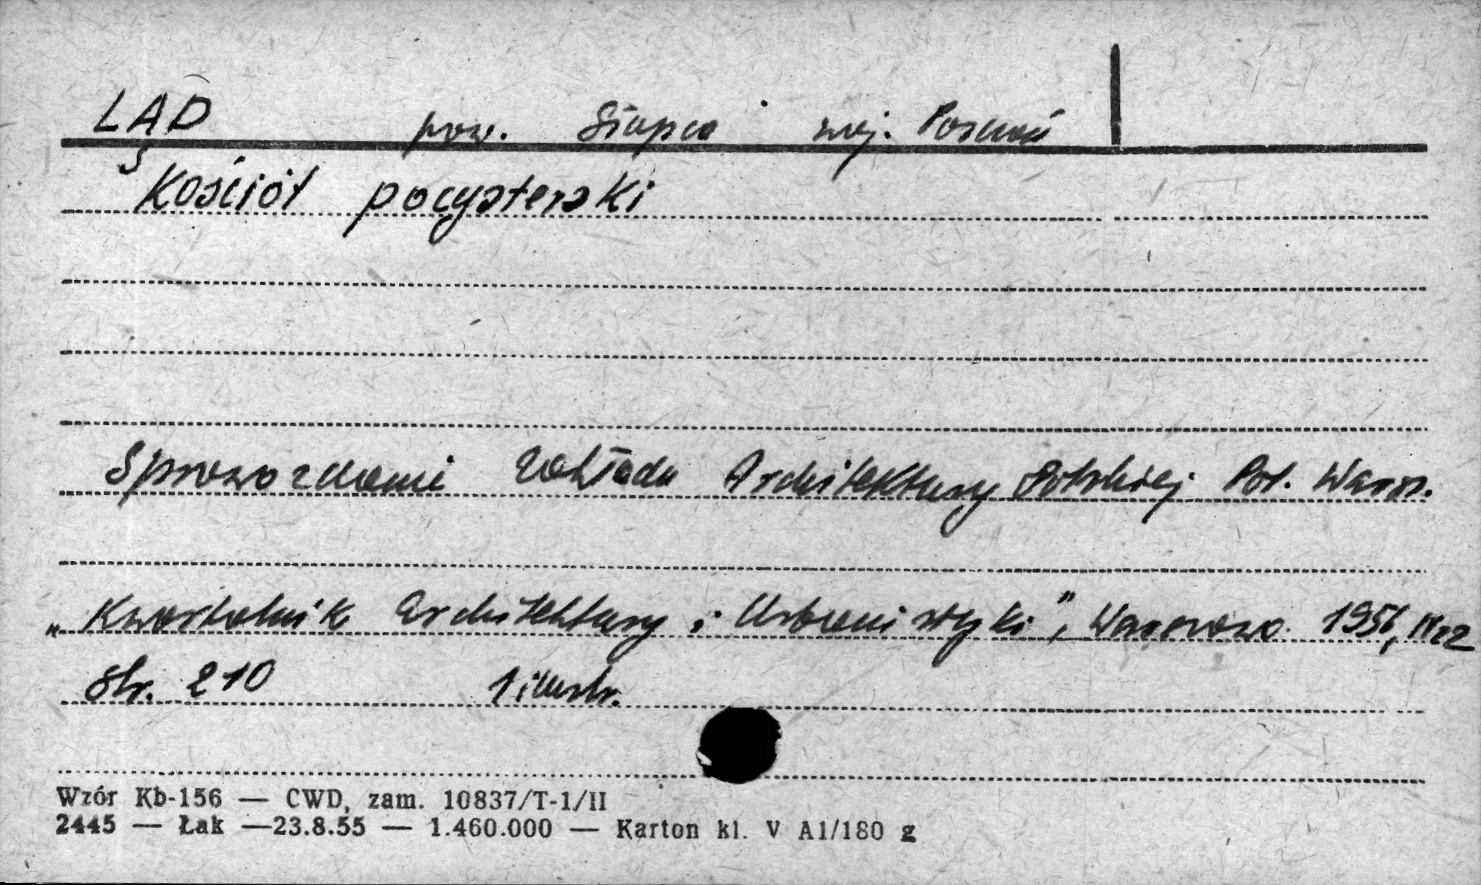 LĄD pow. Słupca woj. Poznań
Kościół pocysterski
Sprawozdanie Zakładu Architektury Polskiej Pol. Warsz.
„Kwartalnik Architektury i Urbanistyki", Warszawa 1956, nr 2
str. 210 1 ilustr.
Wzór Kb-156 — CWD, zam. 10837/T-1/II
2445 — Łak —23.8.55 — 1.460.000 — Karton kl. V A1/180 g